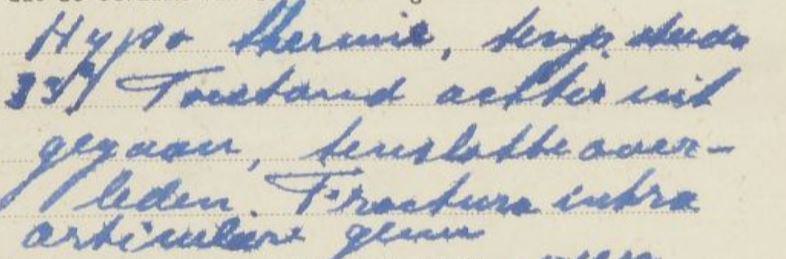 Hypo thermie, temp. steeds
33° Toestand achter uit
gegaan, tenslotte over-
leden. Fractura intra
articulare genu